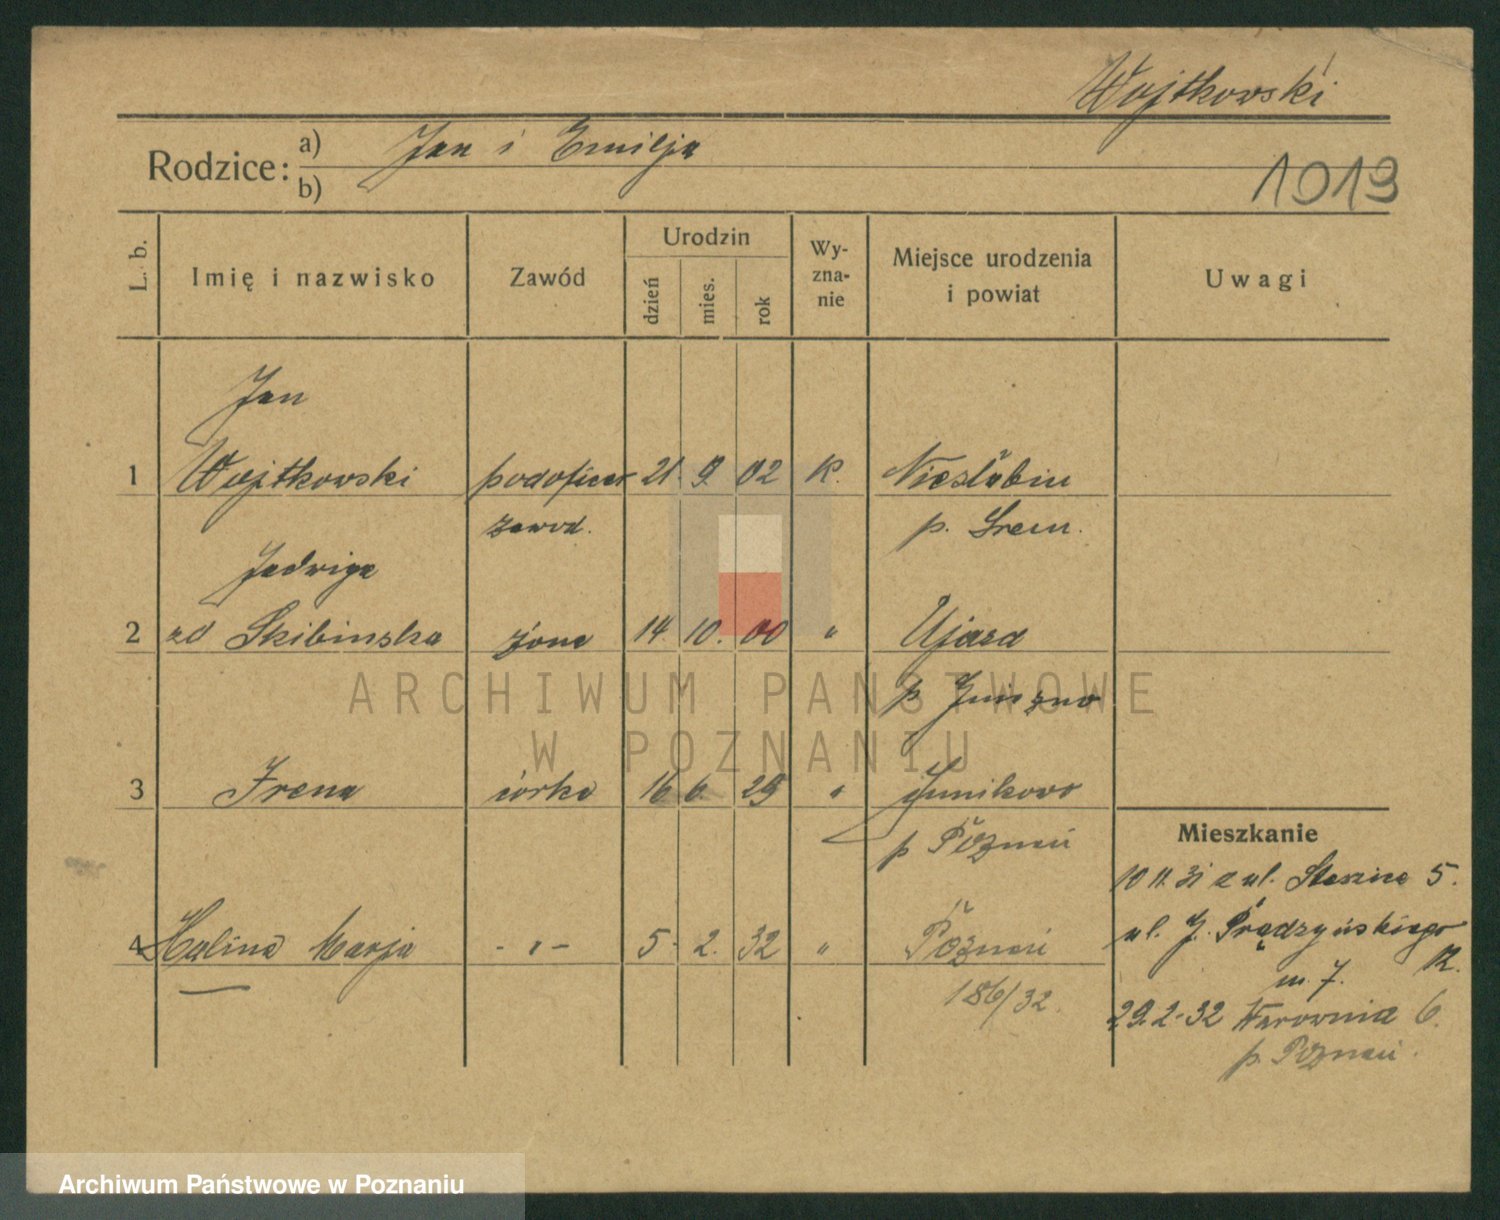 Wojtkowski
Rodzice: a) Jan i Emilja
b)
1019
L. b.
Imię i nazwisko
Zawód
Urodzin
dzień
mies.
rok
Wy-
zna-
nie
Miejsce urodzenia
i powiat
Uwagi
Jan
1 Wojtkowski podoficer 21. 9. 02 K. Niesłabin
zawod. p. Śrem.
Jadwiga
2 zd Skibinska żona 14. 10. 00 " Ujazd
p. Gniezno
3 Irena córka 16 6. 29 " Junikowo
p Poznań
4 Halina Marja - " - 5. 2. 32 " Poznań
186/32
Mieszkanie
10 11. 31 z ul. Staszica 5.
ul. J. Prądzyńskiego
12.
m 7.
29.2.-32 Warownia 6.
p. Poznań.
ARCHIWUM PAŃSTWOWE
W POZNANIU
Archiwum Państwowe w Poznaniu